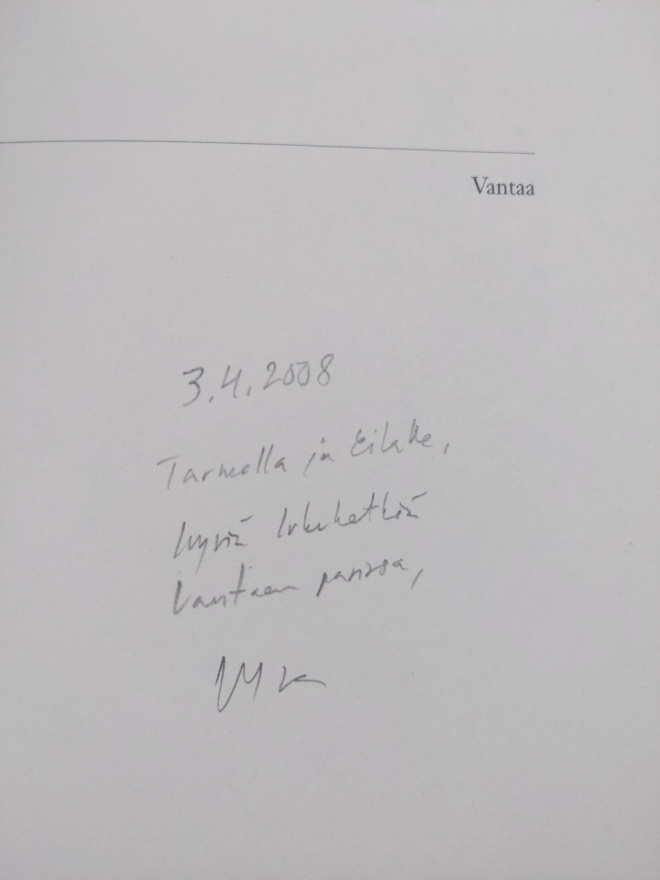 Vantaa
3.4.2008
Tarmolla ja Eilalle,
hyviä lukuhetkiä
Vantaan parissa,